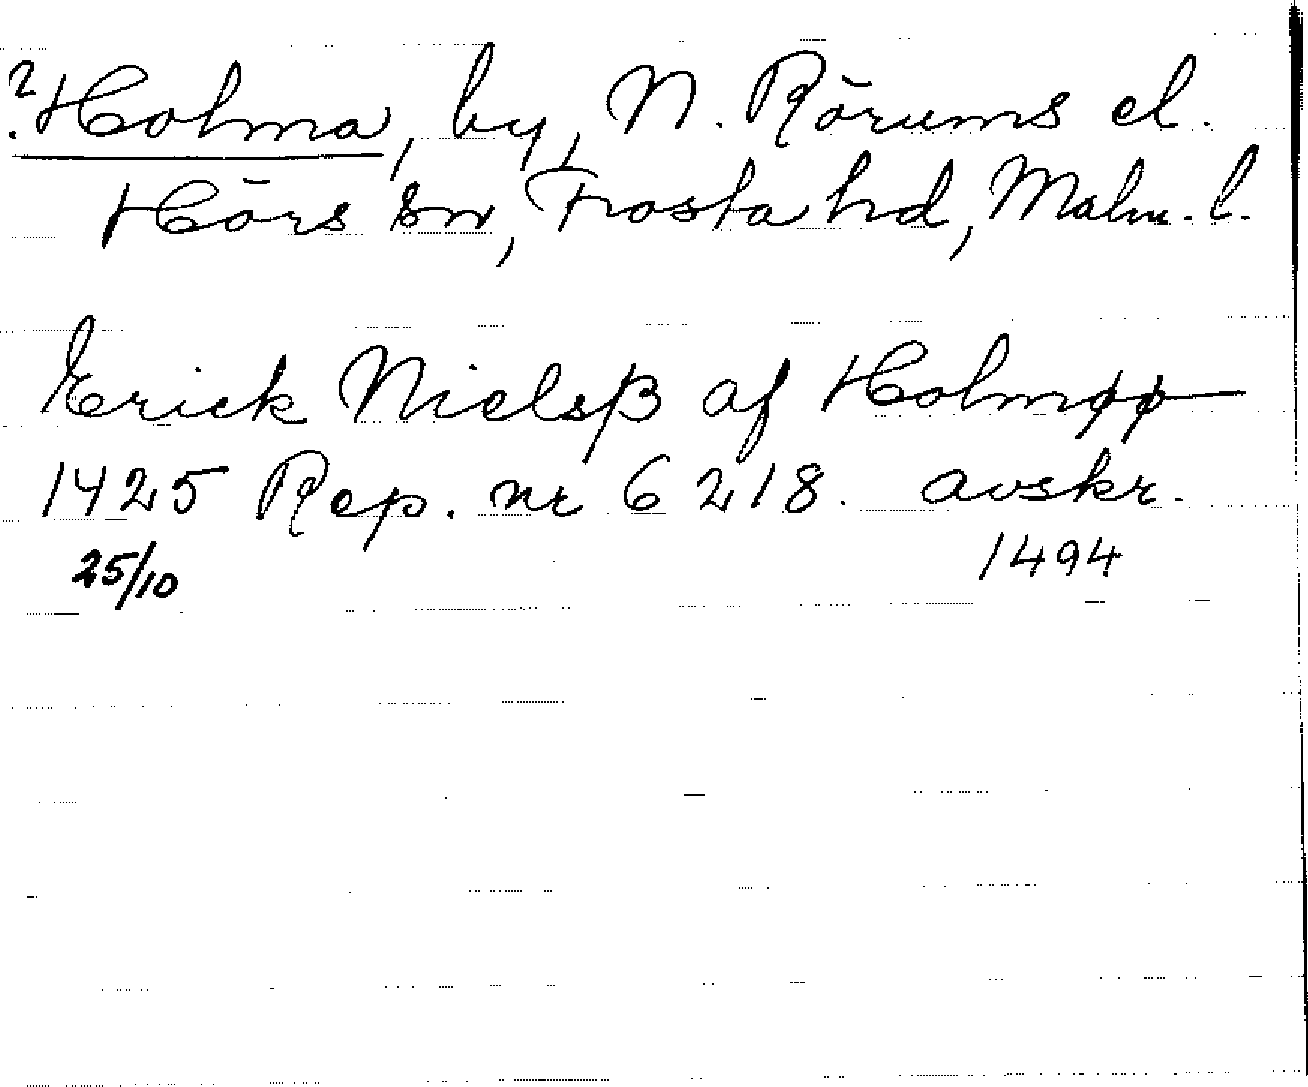 ? Holma, by, N. Rörums el.
Hörs sn, Frosta hd, Malm. l.
Erick Nielsβ af Holmøø
1425 Rep. nr 6218. avskr.
25/10 1494